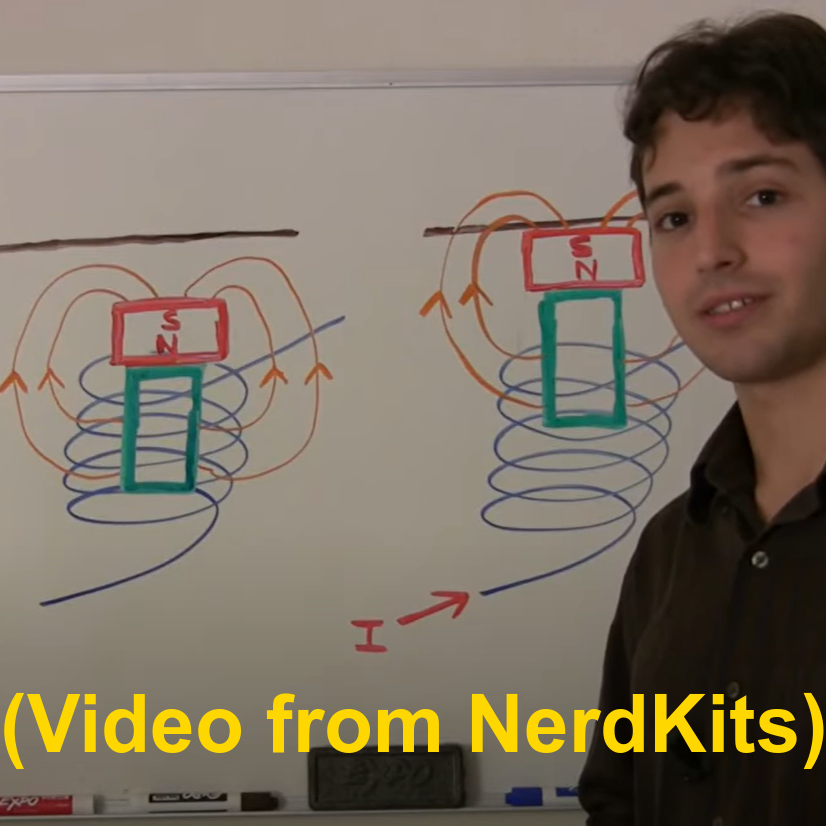 S
N
S
N
I
(Video from NerdKits)
EXPO
EXPO